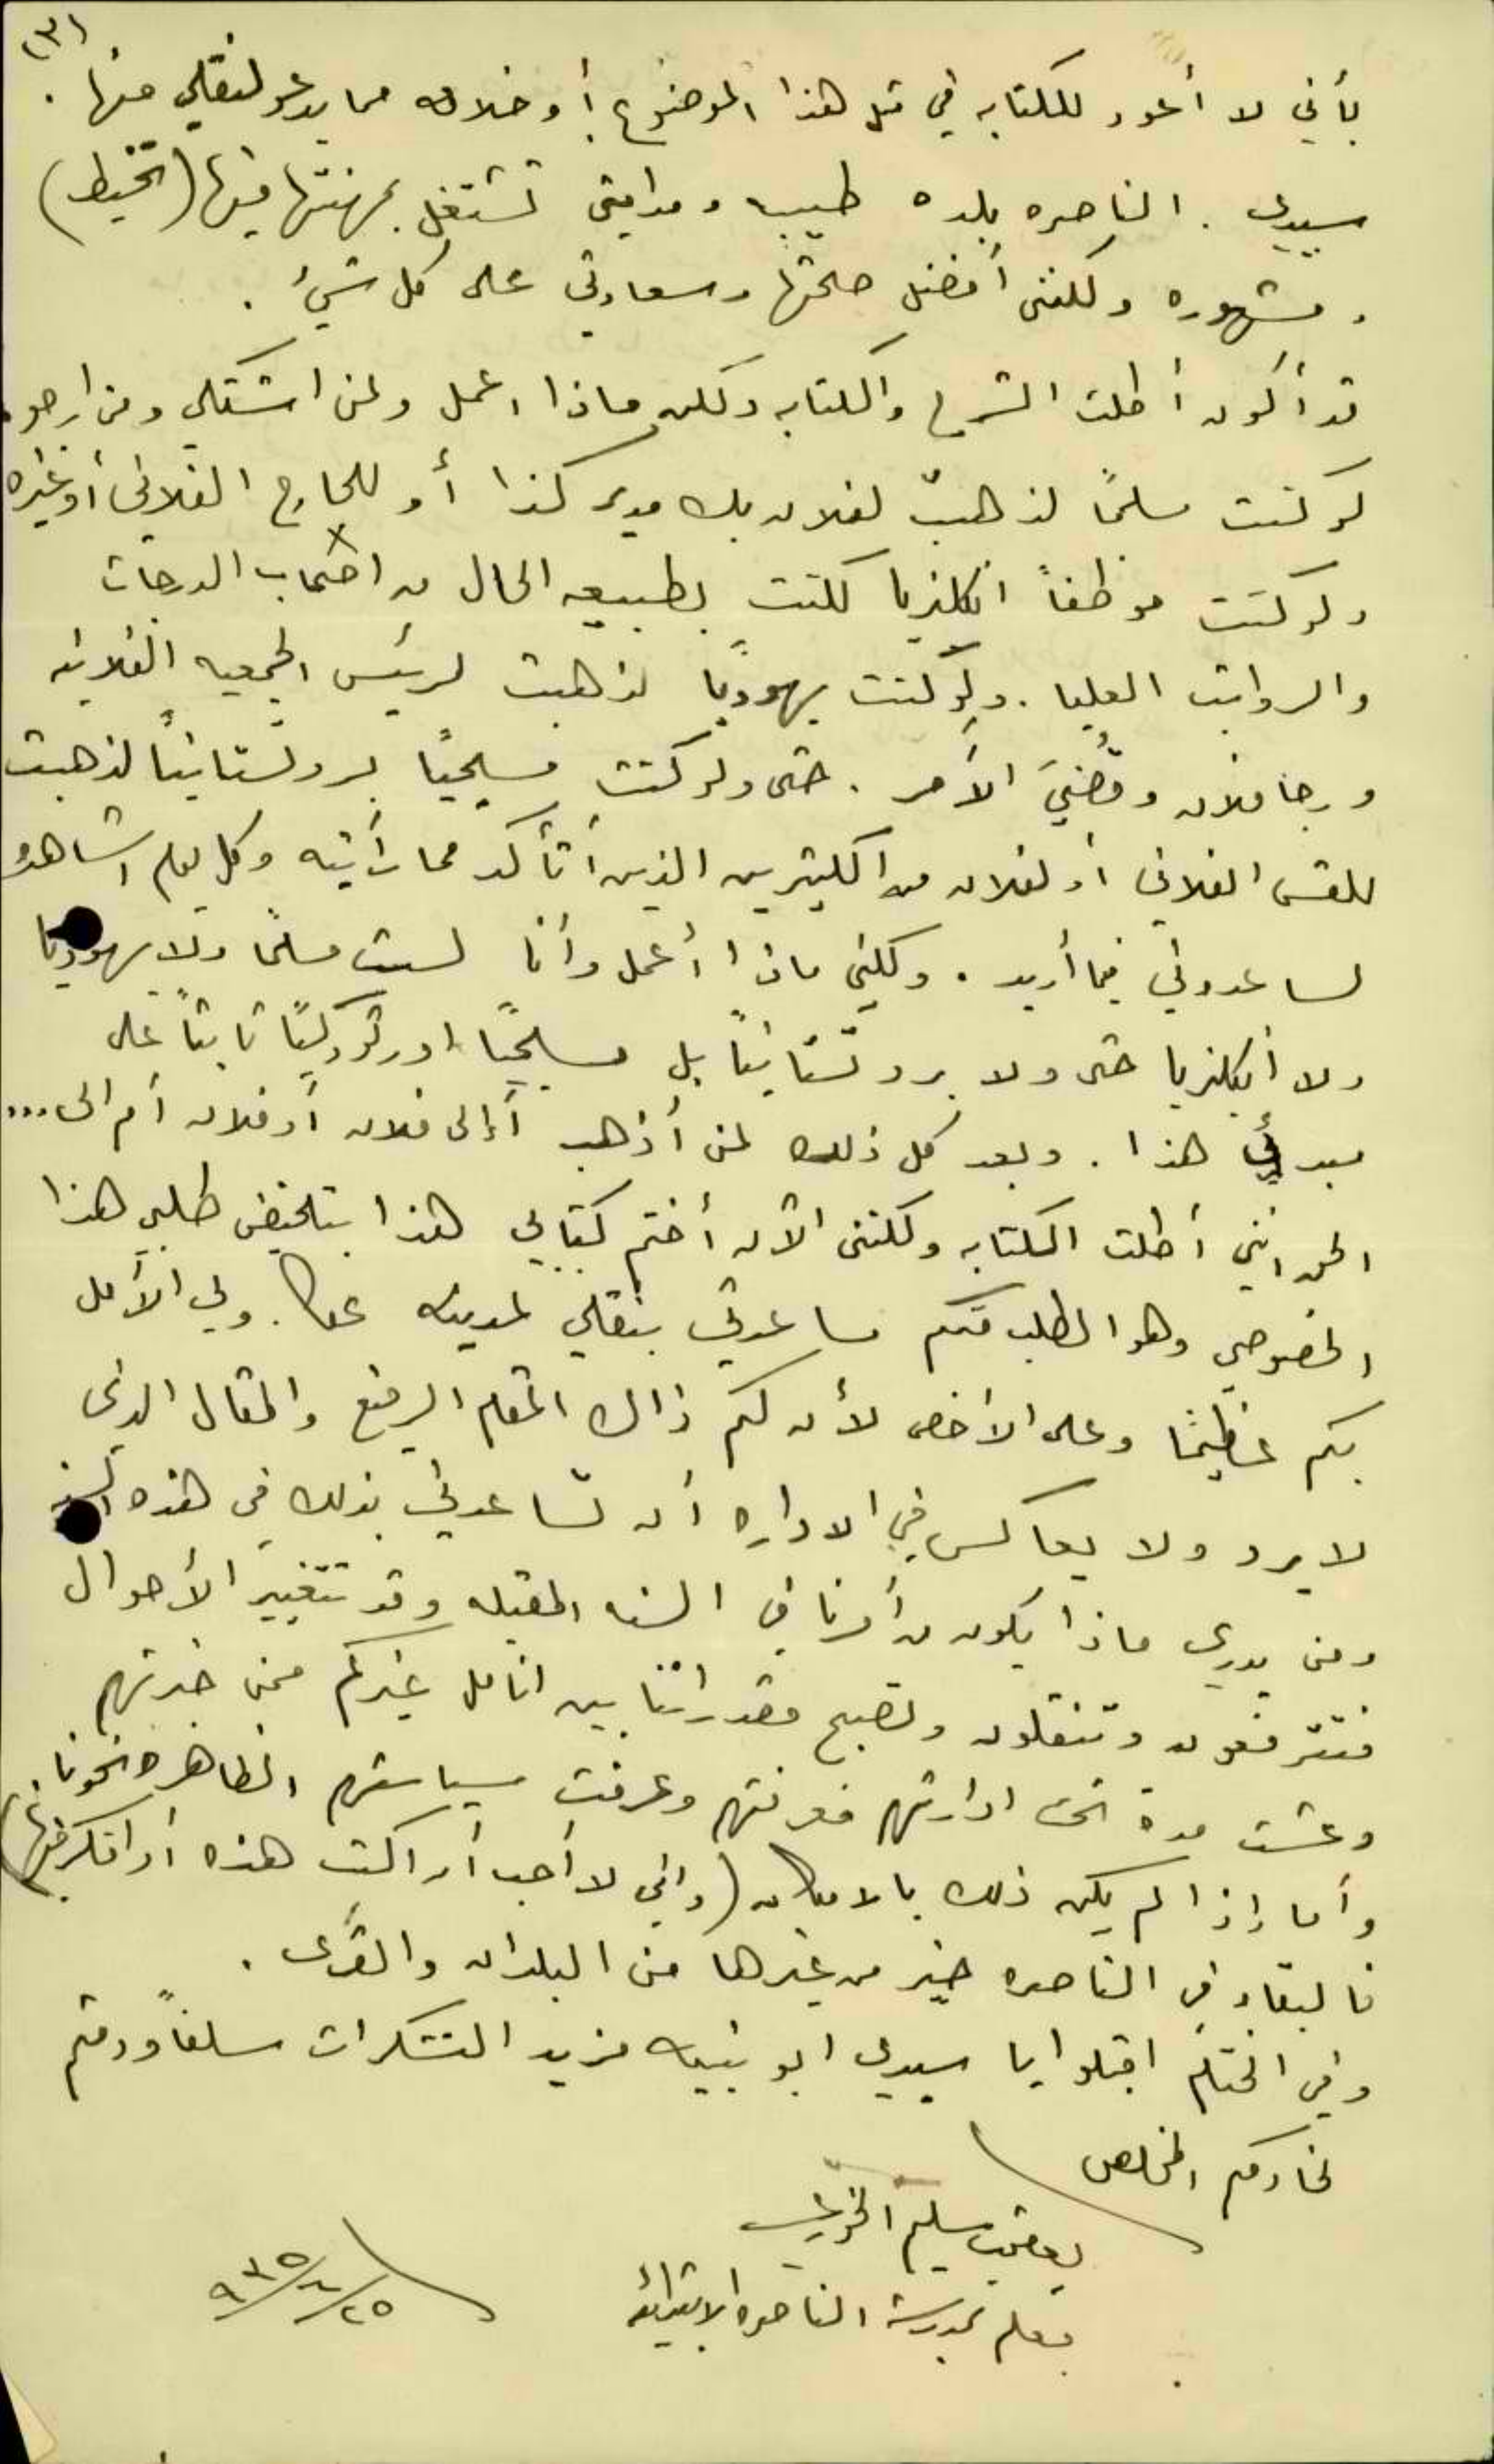 (٣)
بأني لا أعود للكتابه في مثل هذا الموضوع أو خلافه مما يدعو لنقلي منها .
سيدي . الناصره بلده طيبه ومدامتي تشتغل بمهنتها فيها (تخيط)
ومشهوره ولكنني أفضل صحتها وسعادتي على كل شيء .
قد أكون أطلت الشرح والكتابه ولكن ماذا اعمل ولمن اشتكي ومن ارجو
لو كنت مسلماً لذهبت لفلان بك مدير كذا أو للحاج الفلاني أو غيره
ولو كنت موظفاً انكليزيا لكنت بطبيعه الحال من اصحاب الدرجات
والرواتب العليا . ولو كنت يهوديًا لذهبت لرئيس الجمعيه الفلانيه
ورجا فلان وقُضيَ الأمر . حتى ولو كنت مسيحيًا بروتستانيًا لذهبت
للقس الفلاني أو لفلان من الكثيرين الذين أتأكد مما رأيته وكل يوم اشاهده
لساعدوني فيما أريد . ولكني ماذا أعمل وأنا لست مسلمًا ولا يهوديا
ولا انكليزيا حتى ولا بروتستانيًا بل مسيحيًا اورثوذكسيًا ثابتًا على
مبدئي هذا . وبعد كل ذلك لمن أذهب أإلى فلان أو فلان أم الى ...
الحق انني أطلت الكتابه ولكنني الآن أختم كتابي هذا بتلخيص طلبي هذا
الخصوصي وهو الطلب منكم مساعدتي بنقلي لمدينه عكا . ولي الأمل
بكم عظيمًا وعلى الأخص لأن لكم ذاك المقام الرفيع والمقال الذي
لا يرد ولا يعاكس في الاداره أن تساعدوني بذلك في هذه السنه
ومن يدري ماذا يكون من أمرنا في السنه المقبله وقد تتغير الأحوال
فتترفعون وتنقلون وتصبح مقدراتنا بين انامل غيركم ممن خبرتهم
وعشت مدة تحت ادارتهم فعرفتهم وعرفت سياستهم الظاهره نحونا .
وأما إذا لم يكن ذلك بالامكان (واني لا أحب أن اكتب هذه أو افكر فيها)
فالبقاء في الناصره خير من غيرها من البلدان والقرى .
وفي الختام اقبلوا يا سيدي ابو نبيه مزيد التشكرات سلفاً ودمتم
لخادمكم المخلص
يعقوب سليم الخوري
معلم بمدرسة الناصره الابتدائيه
٢٥/٦/٩٣٥